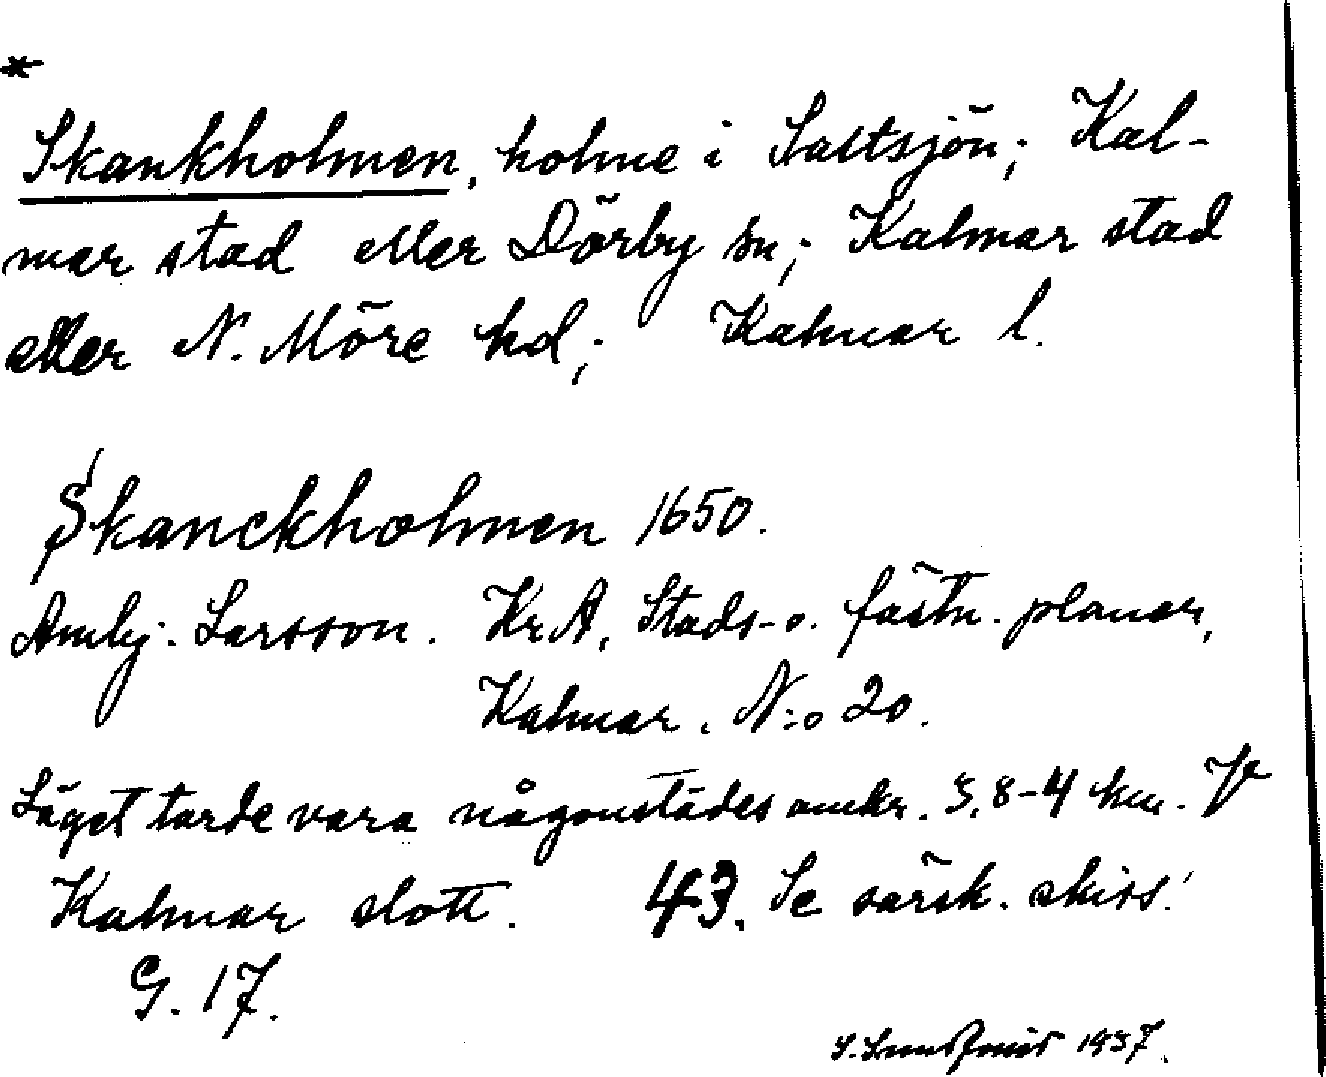 *
Skankholmen, holme i Saltsjön; Kal-
mar stad eller Dörby sn; Kalmar stad
eller N. Möre hd; Kalmar l.
Skanckholmen 1650.
Andhj. Larsson. KrA, Stads- o. fästn. planer,
Kalmar. N:o 20.
Läget torde vara någonstädes omkr. 3,8-4 km. V
Kalmar slott. 43. Se särsk. skiss!
G. 17.
1937.